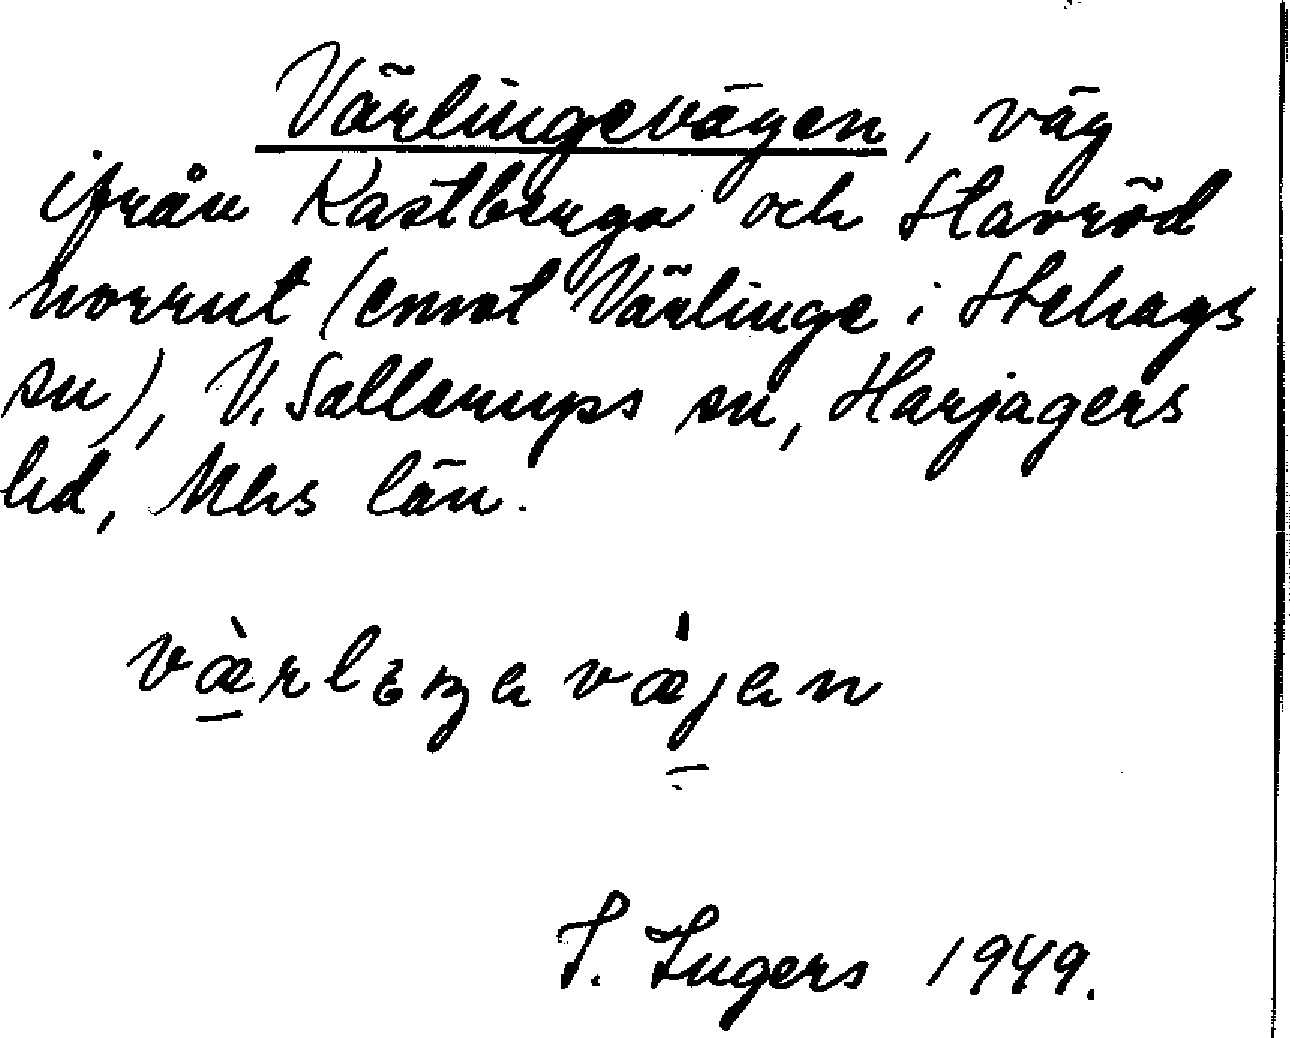 Värlingevägen, väg
ifrån Kastberga och Stavröd
norrut (emot Värlinge i Stehags
sn), V. Sallerups sn, Harjagers
hd, Mhs län.
I. Ingers 1949.